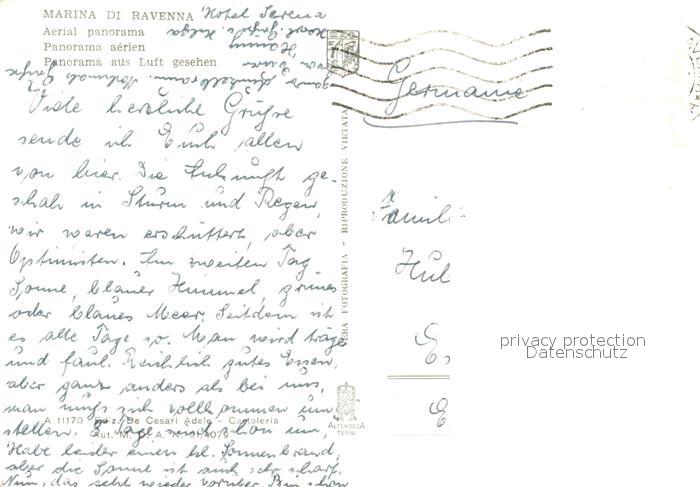 MARINA DI RAVENNA
Hotel Serena
Aerial panorama
Panorama aérien
Panorama aus Luft gesehen
Viele herzliche Grüße
sende ich Euch allen
von hier. Die Ankunft ge-
schah in Sturm und Regen,
wir waren erschüttert, aber
Optimisten. Am zweiten Tag
Sonne, blauer Himmel, grünes
oder blaues Meer. Seitdem ist
es alle Tage so. Man wird träge
und faul. Reichlich gutes Essen,
aber ganz anders als bei uns,
man muß sich vollkommen um
stellen. 8 Tage sind schon um,
A 11170 - Ediz. De Cesari Adele - Cartoleria
Habe leider einen kl. Sonnenbrand,
aber die Sonne ist auch sehr scharf.
Nun, das geht wieder vorüber. Bin schon
ganz dunkelbraun. Nochmals Grüße
von Eurer
Hanny
VERA FOTOGRAFIA - RIPRODUZIONE VIETATA
ALTEROCCA
TERNI
Germania
Famili
Hul
privacy protection
Datenschutz